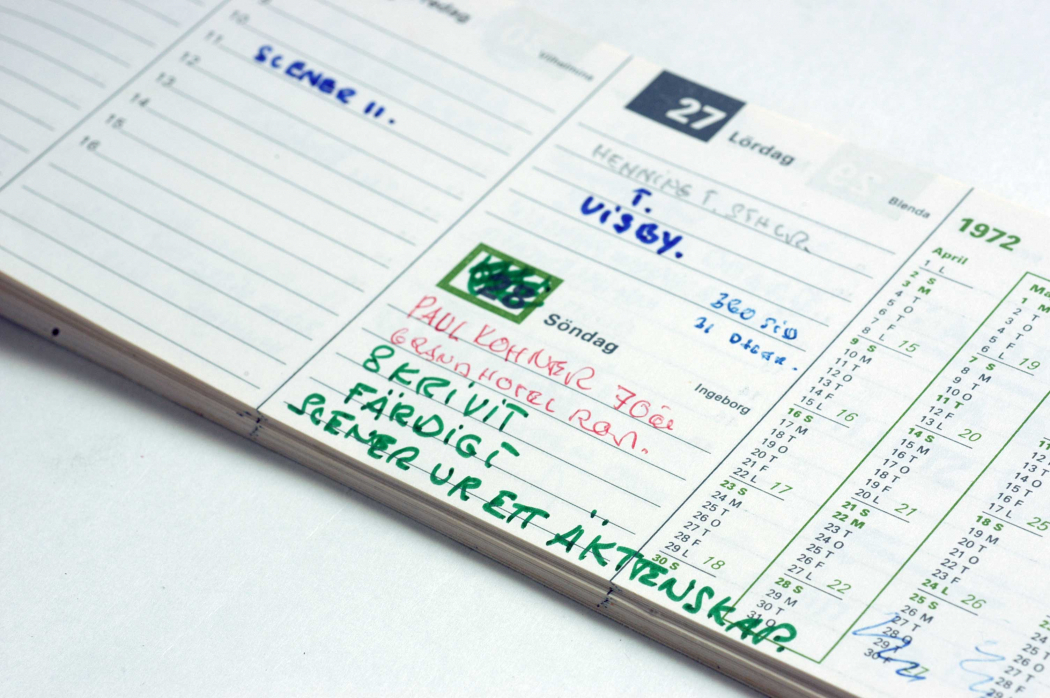 10
11
12
13
14
15
16
SCENER 11.
Vilhelmina
27 Lördag
Blenda
HENNING
T.
VISBY.
28 Söndag
Ingeborg
PAUL KOHNER 70 år
GRAND HOTEL
SKRIVIT
FÄRDIGT
SCENER UR ETT ÄKTENSKAP.
1972
April
1 L
2 S
3 M
4 T
5 O
6 T
7 F
8 L 15
9 S
10 M
11 T
12 O
13 T
14 F
15 L 16
16 S
17 M
18 T
19 O
20 T
21 F
22 L 17
23 S
24 M
25 T
26 O
27 T
28 F
29 L 18
30 S
Ma
1 M
2 T
3 O
4 T
5 F
6 L 19
7 S
8 M
9 T
10 O
11 T
12 F
13 L 20
14 S
15 M
16 T
17 O
18 T
19 F
20 L 21
21 S
22 M
23 T
24 O
25 T
26 F
27 L 22
28 S
29 M
30 T
31 O
1
2
3
4
5
6
7
8
9
10
11 T
12 O
13 T
14 O
15 T
16 F
17 L 25
18 S
19 M
20 T
21 O
22 T
23 F
24 L 26
25 S
26 M
27 T
28 O
29 T
30 F